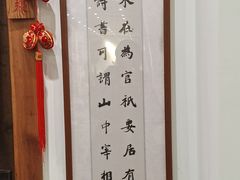 求在為官祇妻居有
詩書可謂山中宰相